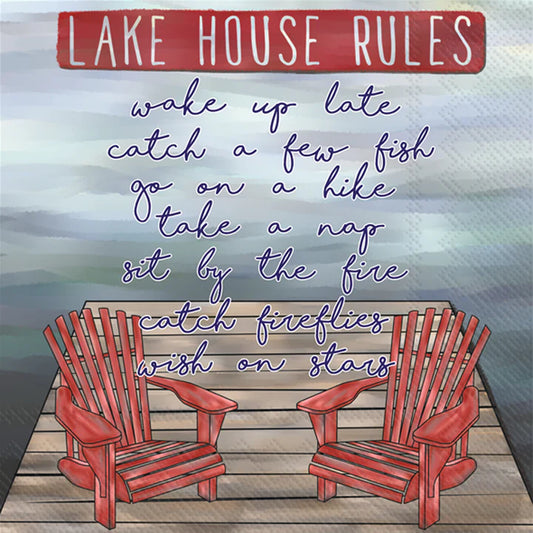 LAKE HOUSE RULES
wake up late
catch a few fish
go on a hike
take a nap
sit by the fire
catch fireflies
wish on stars